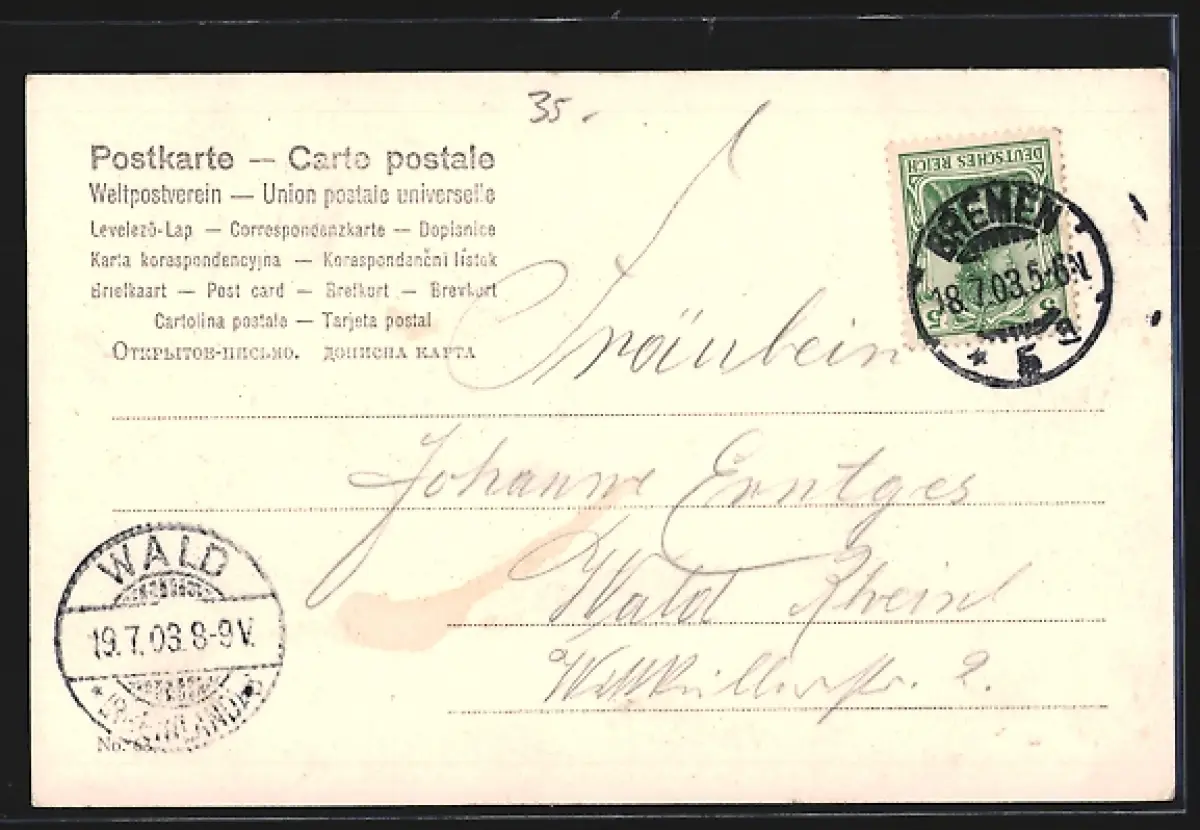 35.
Postkarte — Carte postale
Weltpostverein — Union postale universelle
Levelező-Lap — Correspondenzkarte — Dopisnice
Karta korespondencyjna — Korespondenční lístek
Briefkaart — Post card — Brefkort — Brevkort
Cartolina postale — Tarjeta postal
Открытое-письмо. дописна карта
DEUTSCHES REICH
5 5
BREMEN
18.7.03.5-6N.
* 5 a
Fräulein
Johanne Erntges
Wald Rheinl
str. 2.
WALD
19.7.03.8-9V.
* (RHEINLAND)
No. 63